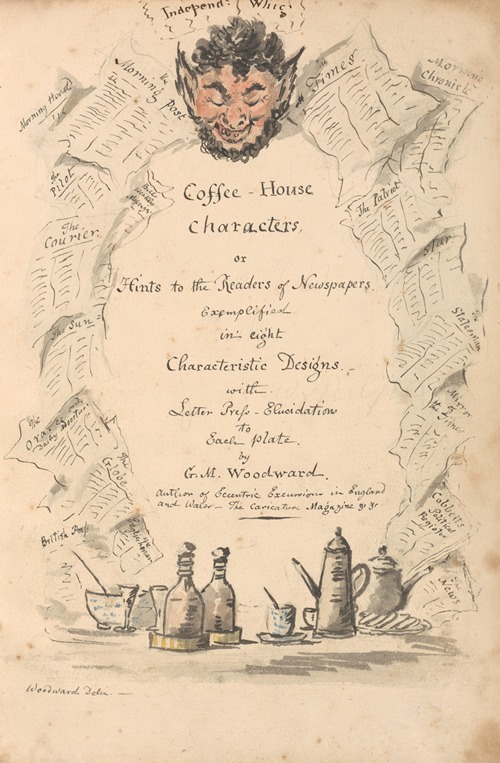 Independt Whig
Morning Herald
the Morning Post
The Times
Morning Chronicle
The Pilot
The Patriot
The Courier
Star
The Sun
The Statesman
Mirror of the Times
The Globe
British Press
The Englishman
Cobbetts Political Register
The News
Coffee-House
Characters,
or
Hints to the Readers of Newspapers
Exemplified
in eight
Characteristic Designs.
with
Letter Press-Elucidations
to
Each plate.
by
G.M. Woodward.
Author of Eccentric Excursions in England
and Wales - The Caricature Magazine &c &c
Woodward Delin.